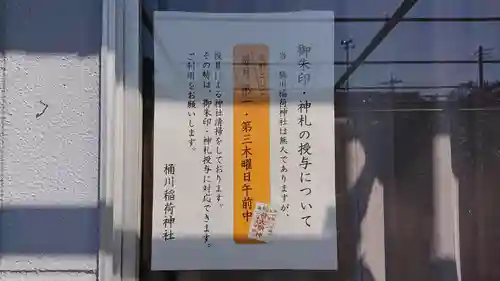 御朱印・神札の授与について
当 桶川稲荷神社は無人でありますが、
毎月第一・第三木曜日午前中
役員による神社清掃をしております。
その時は、御朱印・神札授与に対応できます。
ご利用をお願いします。
桶川稲荷神社